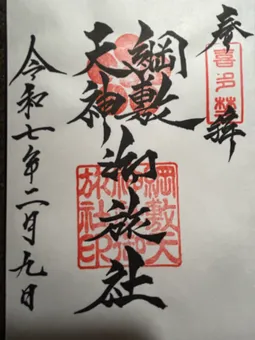 奉拝
喜多埜
綱敷
天神
御旅社
綱敷天
神御
旅社印
令和七年二月九日